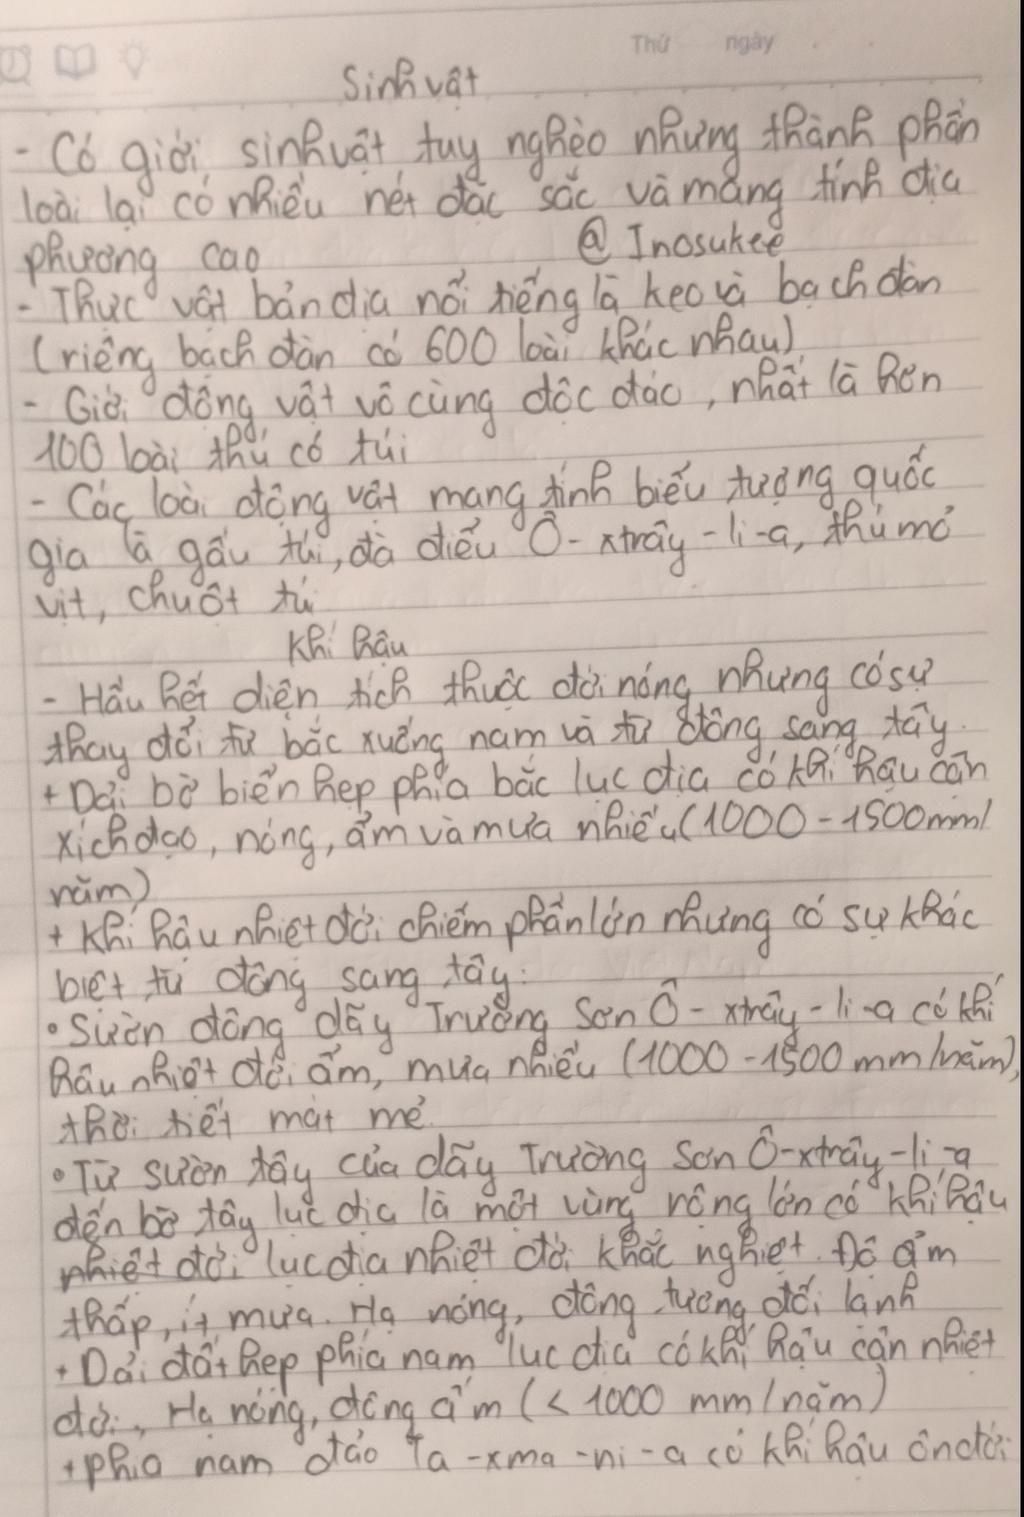 Thứ ngày
Sinh vật
- Có giới sinh vật tuy nghèo nhưng thành phần
loài lại có nhiều nét đặc sắc và mang tính địa
phương cao @ Inosukee
- Thực vật bản địa nổi tiếng là keo và bạch đàn
(riêng bạch đàn có 600 loài khác nhau)
- Giới động vật vô cùng độc đáo, nhất là hơn
100 loài thú có túi
- Các loài động vật mang tính biểu tượng quốc
gia là gấu túi, đà điểu Ô-xtrây-li-a, thú mỏ
vịt, chuột túi
Khí hậu
- Hầu hết diện tích thuộc đới nóng nhưng có sự
thay đổi từ bắc xuống nam và từ đông sang tây.
+ Dải bờ biển hẹp phía bắc lục địa có khí hậu cận
xích đạo, nóng, ẩm và mưa nhiều (1000-1500mm/
năm)
+ Khí hậu nhiệt đới chiếm phần lớn nhưng có sự khác
biệt từ đông sang tây:
• Sườn đông dãy Trường Sơn Ô-xtrây-li-a có khí
hậu nhiệt đới ẩm, mưa nhiều (1000-1500mm/năm),
thời tiết mát mẻ
• Từ sườn tây của dãy Trường Sơn Ô-xtrây-li-a
đến bờ tây lục địa là một vùng rộng lớn có khí hậu
nhiệt đới lục địa nhiệt đới khắc nghiệt. Độ ẩm
thấp, ít mưa. Hạ nóng, đông tương đối lạnh
+ Dải đất hẹp phía nam lục địa có khí hậu cận nhiệt
đới, Hạ nóng, đông ẩm (< 1000 mm/năm)
+ phía nam đảo Ta-xma-ni-a có khí hậu ôn đới